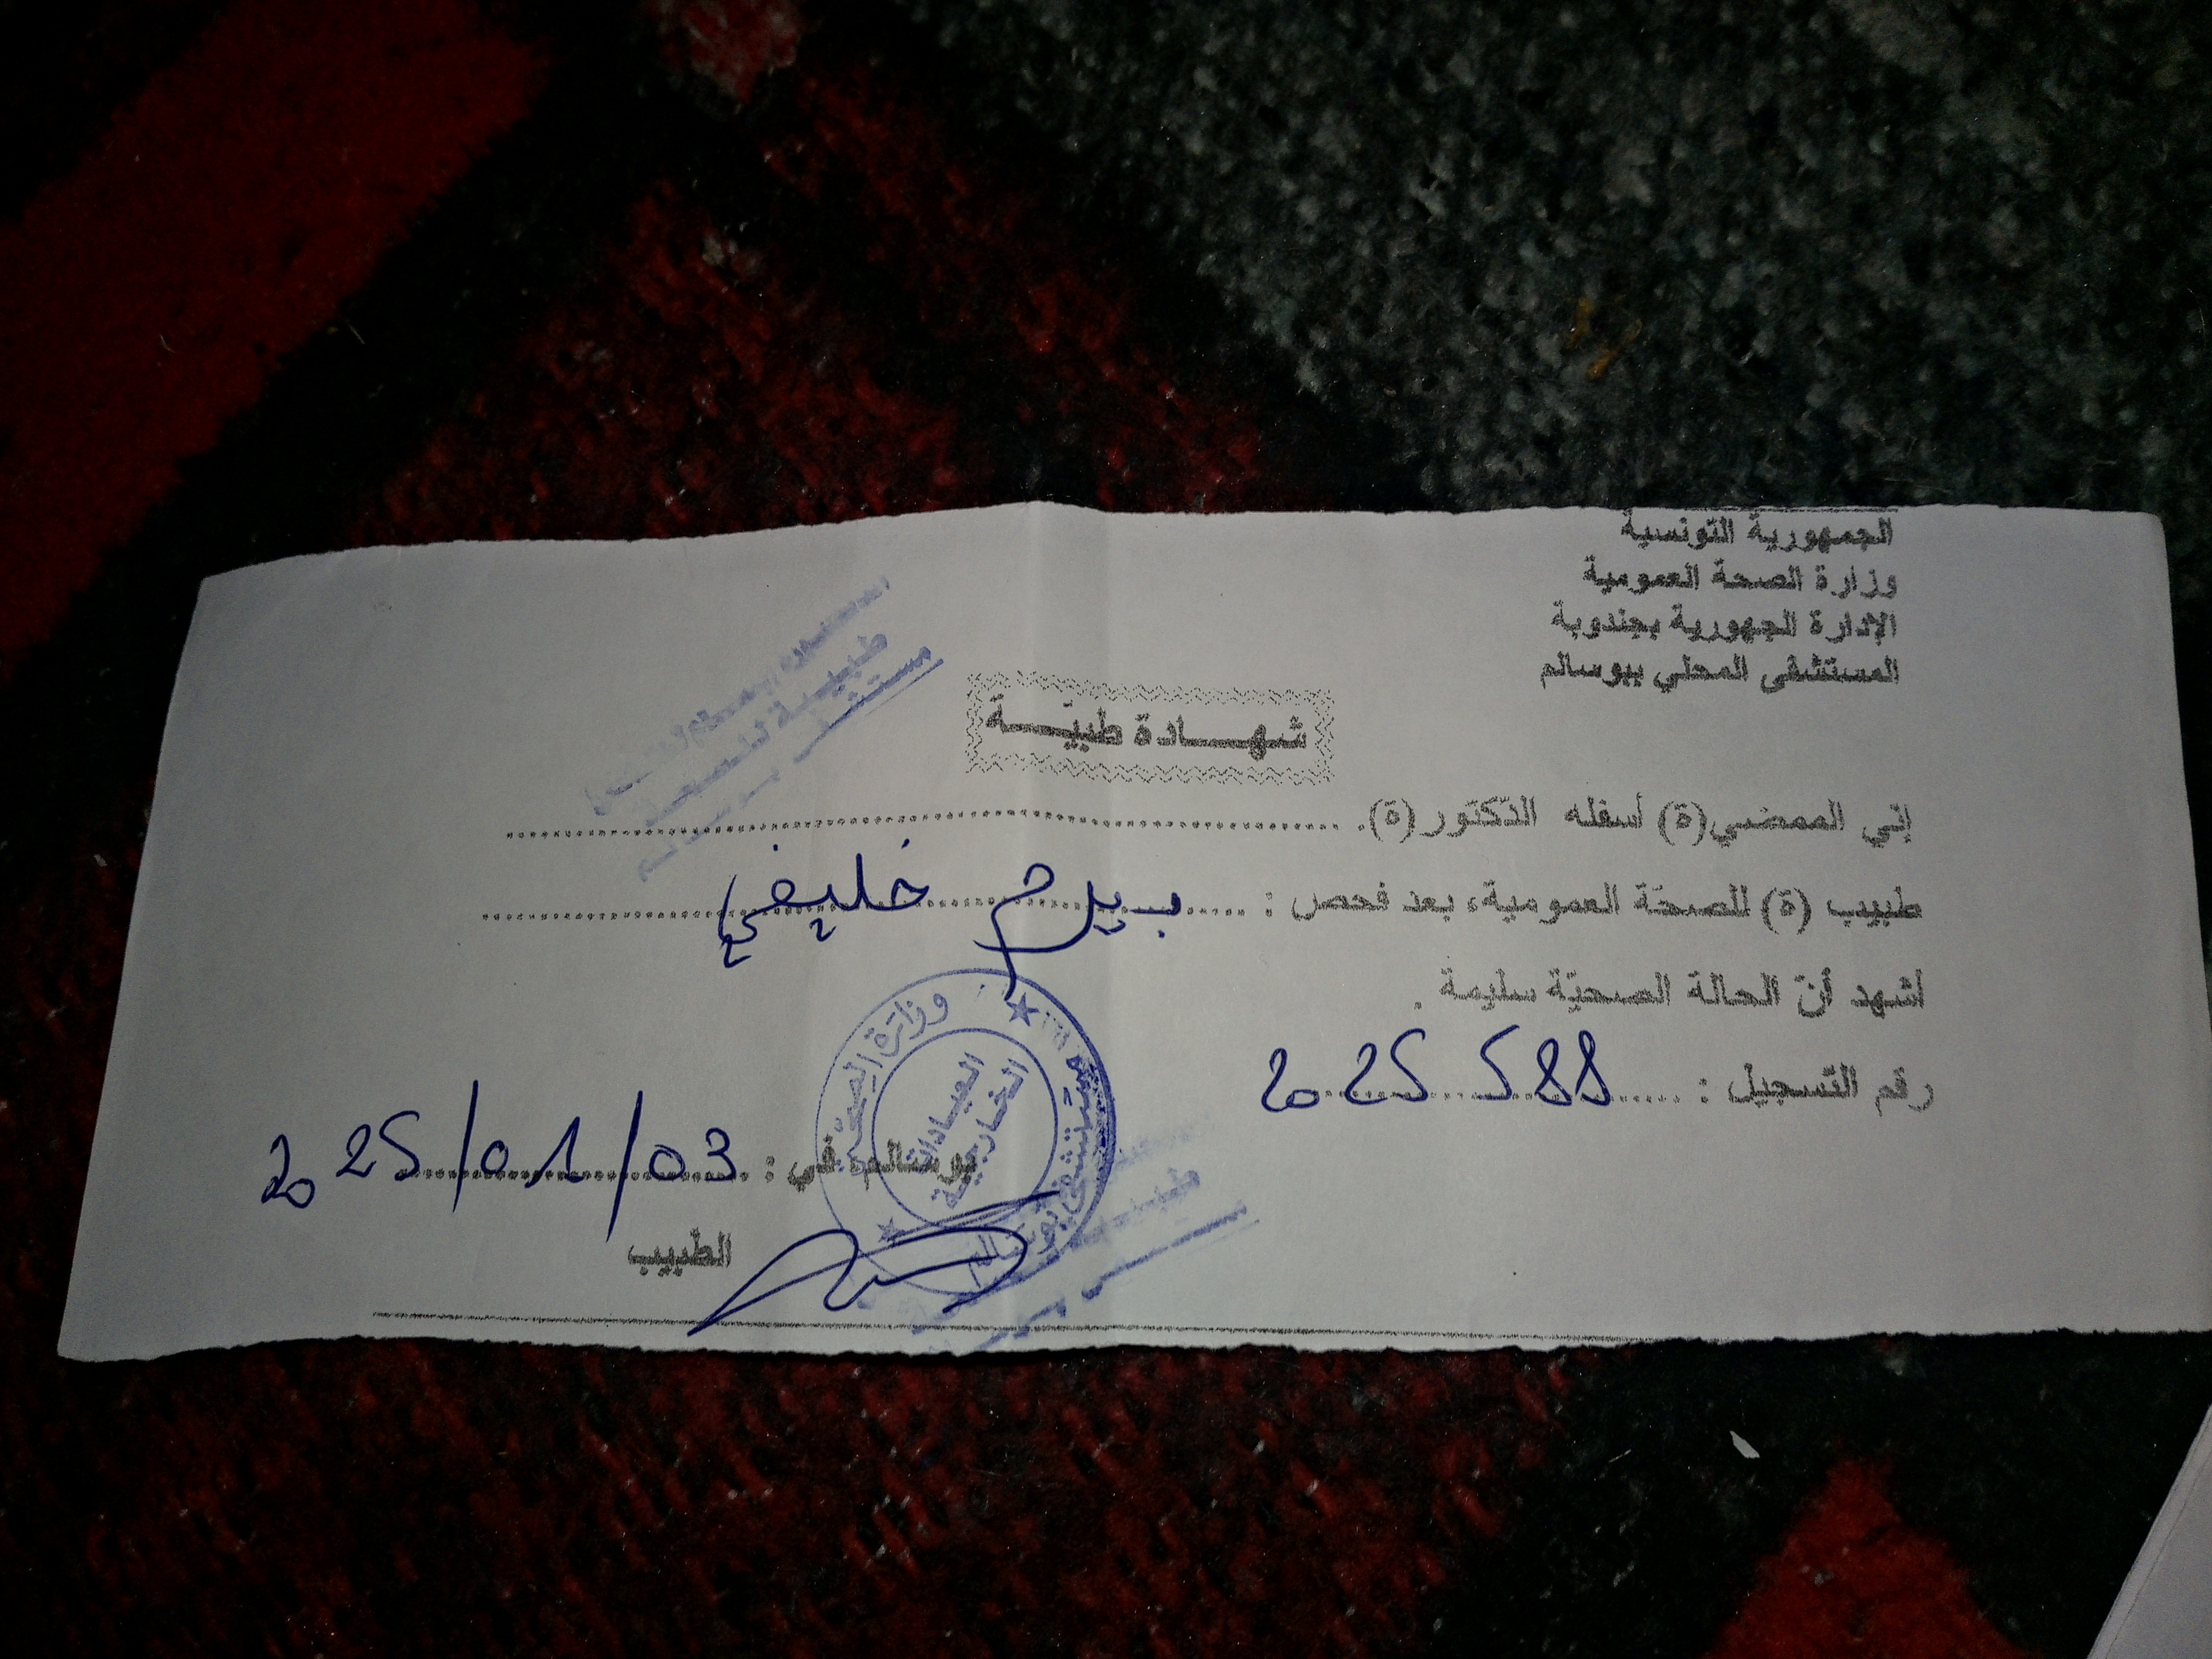 الجمهورية التونسية
وزارة الصحة العمومية
الإدارة الجهورية بجندوبة
المستشفى المحلي ببوسالم
شهـــادة طبيّـــة
إني الممضي(ة) أسفله الدكتور(ة).
طبيب (ة) للصحّة العمومية، بعد فحص : بيرم خليفي
أشهد أنّ الحالة الصحيّة سليمة .
رقم التسجيل : 2025 588
بوسالم في : 2025/01/03
الطبيب
وزارة الصحة
مستشفى بوسالم
العيادات
الخارجية
طبيبة